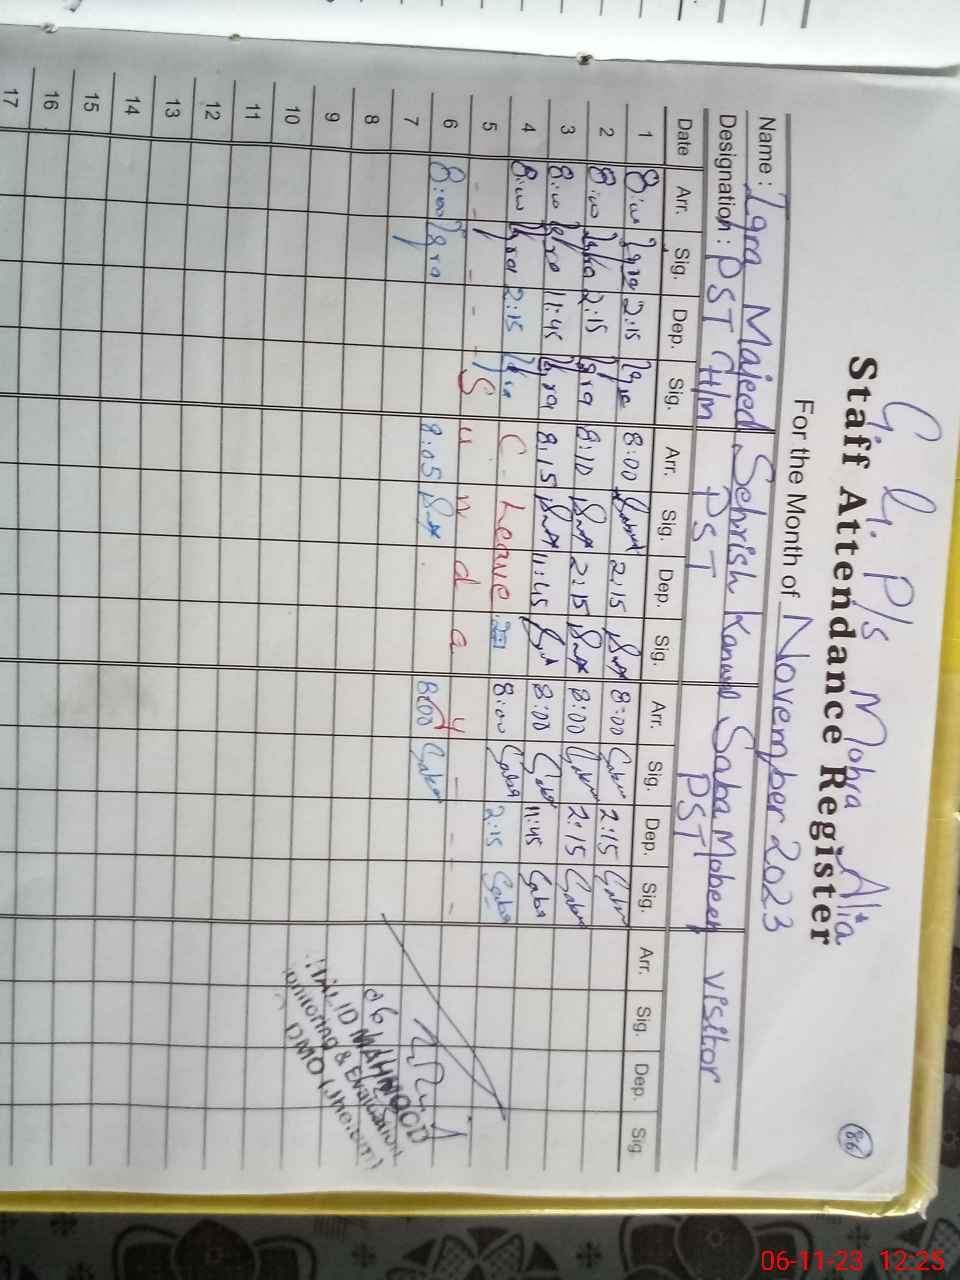 G. G. P/s Mohra Alia
86
Staff Attendance Register
For the Month of November 2023
Name : Iqra Majeed Sehrish Kanwal Saba Mobeen visitor
Designation : PST H/m PST PST
Date Arr. Sig. Dep. Sig. Arr. Sig. Dep. Sig. Arr. Sig. Dep. Sig. Arr. Sig. Dep. Sig
1 8:00 Iqra 2:15 Iqra 8:00 2:15 8:00 Saba 2:15 Saba
2 8:00 Iqra 2:15 Iqra 8:10 2:15 8:00 Saba 2:15 Saba
3 8:00 Iqra 11:45 Iqra 8:15 11:45 8:00 Saba 11:45 Saba
4 8:00 Iqra 2:15 Iqra C-Leave 8:00 Saba 2:15 Saba
5 - - - - S u n d a y - - -
6 8:00 Iqra 8:05 8:00 Saba
7
8
9
10
11
12
13
14
15
16
17
06
MAHMOOD
Monitoring & Evaluation
DMO (Jhelum)
06-11-23 12:25